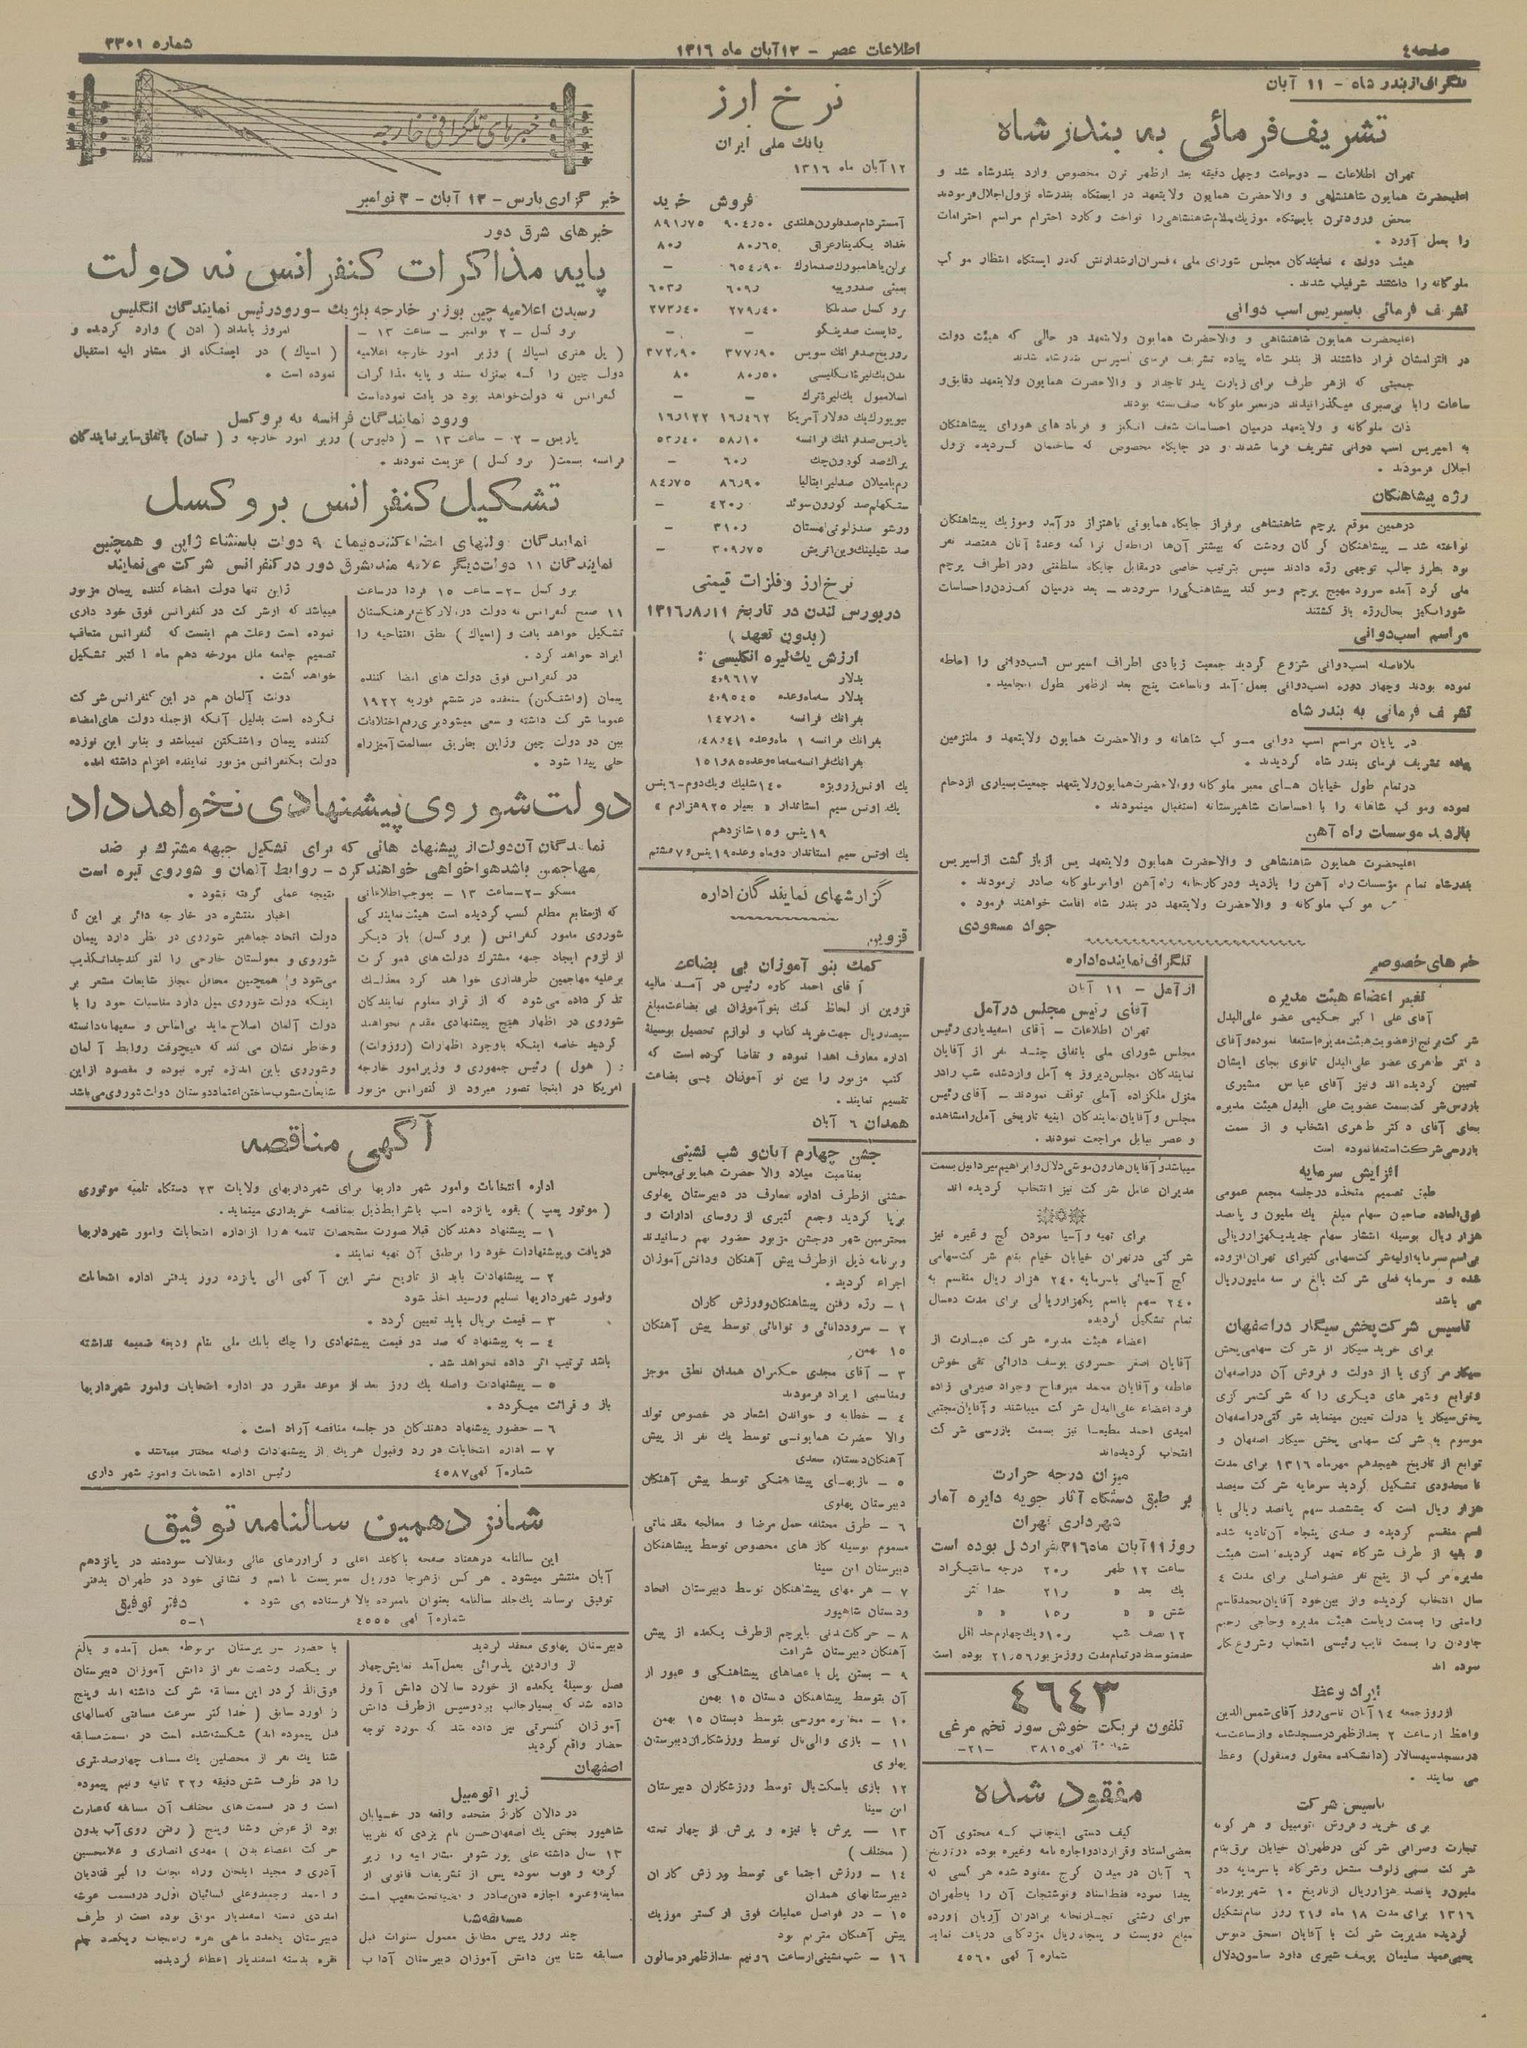 صفحه ٤
اطلاعات عصر - ۱۲ آبان ماه ۱۳۱۶
شماره ۳۳۰۱
تلگراف از بندر شاه - ۱۱ آبان
تشریف فرمائی به بندر شاه
تهران اطلاعات - دوساعت وچهل دقیقه بعد ازظهر ترن مخصوص وارد بندرشاه شد و
اعلیحضرت همایون شاهنشاهی و والاحضرت همایون ولایتعهد در ایستگاه بندرشاه نزول اجلال فرمودند
محض ورودترن بایستگاه موزیك سلام شاهنشاهی را نواخت وگارد احترام مراسم احترامات
را بعمل آورد .
هیئت دولت ، نمایندگان مجلس شورای ملی ، افسران ارشد ارتش که در ایستگاه انتظار موکب
ملوکانه را داشتند شرفیاب شدند .
تشریف فرمائی باسپریس اسب دوانی
اعلیحضرت همایون شاهنشاهی و والاحضرت همایون ولایتعهد در حالی که هیئت دولت
در التزامشان قرار داشتند از بندر شاه پیاده تشریف فرمای اسپریس بندرشاه شدند
جمعیتی که ازهر طرف برای زیارت پدر تاجدار و والاحضرت همایون ولایتعهد دقایق و
ساعات را با بی‌صبری میگذرانیدند درمعبر ملوکانه صف بسته بودند
ذات ملوکانه و ولایتعهد درمیان احساسات شعف انگیز و فریادهای هورای پیشاهنگان
به اسپریس اسب دوانی تشریف فرما شدند و در جایگاه مخصوص که ساختمان گردیده نزول
اجلال فرمودند .
رژه پیشاهنگان
درهمین موقع پرچم شاهنشاهی برفراز جایگاه همایونی باهتزاز درآمد وموزیك پیشاهنگان
نواخته شد - پیشاهنگان گرگان ودشت که بیشتر آن‌ها ازاطفال ترا کمه وعدهٔ آنان هفتصد نفر
بود بطرز جالب توجهی رژه دادند سپس بترتیب خاصی درمقابل جایگاه سلطنتی ودر اطراف پرچم
ملی گرد آمده سرود مهیج پرچم وسوگند پیشاهنگی را سرودند - بعد درمیان کف زدن واحساسات
شورانگیز بحال رژه باز گشتند
مراسم اسب‌دوانی
بلافاصله اسب‌دوانی شروع گردید جمعیت زیادی اطراف اسپریس اسب‌دوانی را احاطه
نموده بودند وچهار دوره اسب‌دوانی بعمل آمد وتاساعت پنج بعد ازظهر طول انجامید .
تشریف فرمائی به بندر شاه
در پایان مراسم اسب دوانی موکب شاهانه و والاحضرت همایون ولایتعهد و ملتزمین
پیاده تشریف فرمای بندر شاه گردیدند .
درتمام طول خیابان های معبر ملوکانه ووالاحضرت همایون ولایتعهد جمعیت بسیاری ازدحام
نموده وموکب شاهانه را با احساسات شاهپرستانه استقبال مینمودند .
بازدید موسسات راه آهن
اعلیحضرت همایون شاهنشاهی و والاحضرت همایون ولایتعهد پس ازباز گشت ازاسپریس
بندرشاه تمام مؤسسات راه آهن را بازدید ودرکارخانه راه آهن اوامر ملوکانه صادر فرمودند .
موکب ملوکانه و والاحضرت ولایتعهد در بندر شاه اقامت خواهند فرمود .
جواد مسعودی
خبرهای خصوصی
تغییر اعضاء هیئت مدیره
آقای علی اکبر حکیمی عضو علی‌البدل
شرکت برنج از عضویت هیئت مدیره استعفا نموده و آقای
دکتر طاهری عضو علی‌البدل ثانوی بجای ایشان
تعیین گردیده‌اند ونیز آقای عباس مشیری
بازرس شرکت بسمت عضویت علی البدل هیئت مدیره
بجای آقای دکتر طاهری انتخاب و از سمت
بازرسی شرکت استعفا نموده است
افزایش سرمایه
طبق تصمیم متخذه درجلسه مجمع عمومی
فوق‌العاده صاحبان سهام مبلغ یك ملیون و پانصد
هزار ریال بوسیله انتشار سهام جدید یکهزار ریالی
بر اسم سرمایه اولیه شرکت سهامی کتیرای تهران افزوده
شده و سرمایه فعلی شرکت بالغ بر سه ملیون ریال
می باشد
تاسیس شرکت پخش سیگار در اصفهان
برای خرید سیگار از شرکت سهامی پخش
سیگار مرکزی یا از دولت و فروش آن دراصفهان
وتوابع وشهر های دیگری را که شرکت مرکزی
پخش سیگار یا دولت تعیین مینماید شرکتی دراصفهان
موسوم به شرکت سهامی پخش سیگار اصفهان و
توابع از تاریخ هیجدهم مهرماه ۱۳۱۶ برای مدت
نامحدودی تشکیل گردید سرمایه شرکت سیصد
هزار ریال است که بششصد سهم پانصد ریالی با
اسم منقسم گردیده و صدی پنجاه آن تادیه شده
و بقیه از طرف شرکاء تعهد گردیده است هیئت
مدیره مرکب از پنج نفر عضواصلی برای مدت ٤
سال انتخاب گردیده واز بین خود آقایان محمدقاسم
را بسمت ریاست هیئت مدیره وحاجی رحیم
جاودن را بسمت نایب رئیسی انتخاب وشروع بکار
نموده اند
ایراد وعظ
ازروز جمعه ۱٤ آبان تاسی روز آقای شمس‌الدین
واعظ ازساعت ۲ بعدازظهر درمسجدشاه وازساعت سه
درمسجد سپهسالار (دانشکده معقول ومنقول) وعظ
می نمایند .
تاسیس شرکت
برای خرید و فروش اتومبیل و هر گونه
تجارت وصرافی شرکتی درطهران خیابان برق بنام
شرکت شرکاء با سرمایه دو
ملیون و پانصد هزار ریال ازتاریخ ۱۰ شهریورماه
۱۳۱۶ برای مدت ۱۸ ماه و ۲۱ روز تشکیل
گردیده مدیریت شرکت با آقایان اسحق
سلیمان یوسف شیری داود ساسون دلال
تلگراف نماینده اداره
از آمل - ۱۱ آبان
آقای رئیس مجلس در آمل
تهران اطلاعات - آقای اسفندیاری رئیس
مجلس شورای ملی باتفاق چند نفر از آقایان
نمایندگان مجلس دیروز به آمل وارد شده شب رادر
منزل ملکزاده آملی توقف نمودند - آقای رئیس
مجلس و آقایان نمایندگان ابنیه تاریخی آمل را مشاهده
و عصر ببابل مراجعت نمودند .
میباشد و آقایان هارون موشی دلال و ابراهیم میردانیل بسمت
مدیران عامل شرکت نیز انتخاب گردیده اند
برای تهیه و آسیا نمودن گچ و غیره نیز
شرکتی درتهران خیابان خیام بنام شرکت سهامی
گچ آسیائی باسرمایه ۲٤۰ هزار ریال منقسم به
۲٤۰ سهم بااسم یکهزار ریالی برای مدت ده سال
تمام تشکیل گردیده
اعضاء هیئت مدیره شرکت عبارت از
آقایان اصغر خسروی یوسف دارائی تقی خوش
عاطفه و آقایان محمد میرفتاح و جواد صیرفی زاده
فرد اعضاء علی‌البدل شرکت میباشند و آقایان مجتبی
امیدی احمد مطیعا نیز بسمت بازرسی شرکت
انتخاب گردیده‌اند
میزان درجه حرارت
بر طبق دستگاه آثار جویه دایره آمار
شهرداری تهران
روز ۱۱ آبان ماه ۳۱۶ بقرار ذیل بوده است
ساعت ۱۲ ظهر ۲۰ر درجه سانتیگراد
یك بعد » ۲۱ر حد اکثر
شش » » ۱۵ر » »
۱۲ نصف شب ۱۰ر ویك چهارم حد اقل
حدمتوسط درتمام مدت روز مزبور ۲۱ر۵۶ بوده است
٤٦٤۳
تلفون بریکت خوش سوز تخم مرغی
شماره آگهی ۳۸۱۵ -۲۱-
مفقود شده
کیف دستی اینجانب که محتوی آن
بعضی اسناد وقرارداد واجاره نامه وغیره بوده درتاریخ
۶ آبان در میدان کرج مفقود شده هر کسی که
پیدا نموده فقط اسناد ونوشتجات آن را بطهران
سرای رشتی تجارتخانه برادران آریان آورده
مبلغ دویست و پنجاه ریال مژدگانی دریافت نماید
شماره آگهی ٤۵۶۰
نرخ ارز
بانك ملی ایران
۱۲ آبان ماه ۱۳۱۶
فروش خرید
آمستردام صد فلورن هلندی ۹۰٤٫۵۰ ۸۹۱٫۷۵
بغداد یکدینار عراقی ۸۰٫۶۵ ۸۰ر
برلن یا هامبورك صد مارك ۶۵٤٫۹۰ -
بمبئی صد روپیه ۶۰۹ر ۶۰۳ر
بروکسل صد بلگا ۲۷۹٫٤۰ ۲۷۳٫٤۰
بوداپست صد پنگو - -
زوریخ صد فرانك سویس ۳۷۷٫۹۰ ۳۷۲٫۹۰
لندن یك لیرهٔ انگلیسی ۸۰٫۵۰ ۸۰
اسلامبول یك لیرهٔ ترك - -
نیویورك یك دولار آمریکا ۱۶٫٤۶۲ ۱۶٫۱۲۲
پاریس صد فرانك فرانسه ۵۸٫۱۰ ۵۳٫٤۰
پراك صد کورون چك ۶۰ر -
رم یا میلان صد لیر ایتالیا ۸۶٫۹۰ ۸٤٫۷۵
ستکهلم صد کورون سوئد ٤۲۰ر -
ورشو صد زلوتی لهستان ۳۱۰ر -
صد شیلینك وین اتریش ۳۰۹٫۷۵ -
نرخ ارز وفلزات قیمتی
دربورس لندن در تاریخ ۱۳۱۶٫۸٫۱۱
(بدون تعهد)
ارزش یك لیره انگلیسی :
بدلار ٤٫۹۶۱۷
بدلار سه‌ماه وعده ٤٫۹۵٤۵
بفرانك فرانسه ۱٤۷٫۱۰
بفرانك فرانسه ۱ ماه وعده ۱٤۸٫٤۱
بفرانك فرانسه سه ماه وعده ۱۵۱٫۸۵
یك اونس زرویژه ۱٤۰ شلینك ویك دوم ۶ پنس
یك اونس سیم استاندارد » بعیار ۹۲۵ هزارم »
۱۹ پنس و ۱۵ شانزدهم
یك اونس سیم استاندارد دوماه وعده ۱۹ پنس و ۷ هشتم
گزارشهای نمایندگان اداره
قزوین
کمك بنو آموزان بی بضاعت
آقای احمد کاوه رئیس در آمد مالیه
قزوین از لحاظ کمك بنوآموزان بی بضاعت مبلغ
سیصد ریال جهت خرید کتاب و لوازم تحصیل بوسیلهٔ
اداره معارف اهدا نموده و تقاضا کرده است که
کتب مزبور را بین نو آموزان بی بضاعت
تقسیم نمایند .
همدان ۶ آبان
جشن چهارم آبان و شب نشینی
بمناسبت میلاد والا حضرت همایونی مجلس
جشنی ازطرف اداره معارف در دبیرستان پهلوی
برپا گردید وجمع کثیری از روسای ادارات و
محترمین شهر درجشن مزبور حضور بهم رسانیدند
وبرنامه ذیل ازطرف پیش آهنگان ودانش‌آموزان
اجراء گردید .
۱ - رژه رفتن پیشاهنگان وورزش کاران
۲ - سرود دانائی و توانائی توسط پیش آهنگان
۱۵ بهمن
۳ - آقای مجدی حکمران همدان نطق موجز
ومناسبی ایراد فرمودند
٤ - خطابه و خواندن اشعار در خصوص تولد
والا حضرت همایونی توسط یك نفر از پیش
آهنگان دبستان سعدی
۵ - بازیهای پیشاهنگی توسط پیش آهنگان
دبیرستان پهلوی
۶ - طرق مختلفه حمل مرضا و معالجه مقدماتی
مسموم بوسیله گاز های مخصوص توسط پیشاهنگان
دبیرستان ابن سینا
۷ - هرمهای پیشاهنگان توسط دبیرستان اتحاد
ودبستان شاهپور
۸ - حرکات بدنی باپرچم ازطرف یکعده از پیش
آهنگان دبیرستان شرافت
۹ - بستن پل با عصاهای پیشاهنگی و عبور از
آن بتوسط پیشاهنگان دبستان ۱۵ بهمن
۱۰ - مخابره مورسی بتوسط دبستان ۱۵ بهمن
۱۱ - بازی والی‌بال توسط ورزشکاران دبیرستان
پهلوی
۱۲ بازی باسکت‌بال توسط ورزشکاران دبیرستان
ابن سینا
۱۳ - پرش با نیزه و پرش از چهار تخته
( مختلف )
۱٤ - ورزش اجتماعی توسط ورزش کاران
دبیرستانهای همدان
۱۵ - در فواصل عملیات فوق ارکستر موزیك
پیش آهنگان مترنم بود
۱۶ - شب نشینی ازساعت ۶ ونیم بعدازظهر درسالون
خبرهای تلگرافی خارجه
خبرگزاری پارس - ۱۲ آبان - ۳ نوامبر
خبرهای شرق دور
پایه مذاکرات کنفرانس نه دولت
رسیدن اعلامیه چین بوزیر خارجه بلژیك - ورود رئیس نمایندگان انگلیس
بروکسل - ۲ نوامبر - ساعت ۱۳ -
( پل هنری اسپاك ) وزیر امور خارجه اعلامیه
دولت چین را که بمنزله سند و پایه مذاکرات
کنفرانس نه دولت خواهد بود دریافت نموده است
امروز بامداد ( ادن ) وارد گردیده و
( اسپاك ) در ایستگاه از مشار الیه استقبال
نموده است .
ورود نمایندگان فرانسه به بروکسل
پاریس - ۲ - ساعت ۱۳ - ( دلبوس ) وزیر امور خارجه و ( تسان ) باتفاق سایر نمایندگان
فرانسه بسمت ( بروکسل ) عزیمت نمودند .
تشکیل کنفرانس بروکسل
نمایندگان دولتهای امضاء کننده پیمان ۹ دولت باستثناء ژاپن و همچنین
نمایندگان ۱۱ دولت دیگر علاقه مند بشرق دور در کنفرانس شرکت می‌نمایند
بروکسل - ۲ - ساعت ۱۵ فردا درساعت
۱۱ صبح کنفرانس نه دولت در تالار کاخ فرهنگستان
تشکیل خواهد یافت و (اسپاك) نطق افتتاحیه را
ایراد خواهد کرد .
در کنفرانس فوق دولت های امضا کننده
پیمان (واشنگتن) منعقده در ششم فوریه ۱۹۲۲
عموما شرکت داشته و سعی میشود برای رفع اختلافات
بین دو دولت چین وژاپن بطریق مسالمت آمیز راه
حلی پیدا شود .
ژاپن تنها دولت امضاء کننده پیمان مزبور
میباشد که ازشرکت در کنفرانس فوق خود داری
نموده است وعلت هم اینست که کنفرانس متعاقب
تصمیم جامعه ملل مورخه دهم ماه اکتبر تشکیل
خواهد گشت .
دولت آلمان هم در این کنفرانس شرکت
نکرده است بدلیل آنکه ازجمله دولت های امضاء
کننده پیمان واشنگتن نمیباشد و بنابر این نوزده
دولت بکنفرانس مزبور نماینده اعزام داشته اند.
دولت شوروی پیشنهادی نخواهد داد
نمایندگان آن دولت از پیشنهاد هائی که برای تشکیل جبهه مشترك بر ضد
مهاجمین باشد هواخواهی خواهند کرد - روابط آلمان و شوروی تیره است
مسکو - ۲ - ساعت ۱۳ - بموجب اطلاعاتی
که ازمنابع مطلع کسب گردیده است هیئت نمایندگی
شوروی مامور کنفرانس ( بروکسل ) بار دیگر
از لزوم ایجاد جبهه مشترك دولت های دموکرات
برعلیه مهاجمین طرفداری خواهد کرد معذلك
تذکر داده می‌شود که از قرار معلوم نمایندگان
شوروی در اظهار هیچ پیشنهادی مقدم نخواهند
گردید خاصه اینکه باوجود اظهارات (روزولت)
و ( هول ) رئیس جمهوری و وزیر امور خارجه
امریکا در اینجا تصور میرود از کنفرانس مزبور
نتیجه عملی گرفته نشود .
اخبار منتشره در خارجه دائر بر این که
دولت اتحاد جماهیر شوروی در نظر دارد پیمان
شوروی و مغولستان خارجی را لغو کند جداً تکذیب
می‌شود و همچنین محافل مجاز شایعات مشعر بر
اینکه دولت شوروی میل دارد مناسبات خود را با
دولت آلمان اصلاح نماید بی‌اساس و سفیهانه دانسته
وخاطر نشان می کنند که هیچوقت روابط آلمان
وشوروی باین اندازه تیره نبوده و مقصود ازاین
شایعات مشوب ساختن اعتماد دوستان دولت شوروی میباشد
آگهی مناقصه
اداره انتخابات وامور شهر داریها برای شهرداریهای ولایات ۲۳ دستگاه تلمبه موتوری
( موتور پمپ ) بقوه پانزده اسب باشرایط ذیل بمناقصه خریداری مینماید.
۱ - پیشنهاد دهندگان قبلا صورت مشخصات تلمبه ها را ازاداره انتخابات وامور شهرداریها
دریافت وپیشنهادات خود را برطبق آن تهیه نمایند .
۲ - پیشنهادات باید از تاریخ نشر این آگهی الی پانزده روز بدفتر اداره انتخابات
وامور شهرداریها تسلیم ورسید اخذ شود
۳ - قیمت بریال باید تعیین گردد .
٤ - به پیشنهادی که صد دو قیمت پیشنهادی را چك بانك ملی بنام ودیعه ضمیمه نداشته
باشد ترتیب اثر داده نخواهد شد .
۵ - پیشنهادات واصله یك روز بعد از موعد مقرر در اداره انتخابات وامور شهرداریها
باز و قرائت میگردد .
۶ - حضور پیشنهاد دهندگان در جلسه مناقصه آزاد است .
۷ - اداره انتخابات در رد وقبول هریك از پیشنهادات واصله مختار میباشد .
شماره آگهی ٤۵۸۷ رئیس اداره انتخابات وامور شهر داری
شانزدهمین سالنامه توفیق
این سالنامه درهفتاد صفحه باکاغذ اعلی و گراورهای عالی ومقالات سودمند در پانزدهم
آبان منتشر میشود. هر کس ازهرجا دوریال تمبر پست با اسم و نشانی خود در طهران بدفتر
توفیق برساند یك‌جلد سالنامه بعنوان نامبرده بالا فرستاده می شود . دفتر توفیق
شماره آگهی ٤۵۵۵ ۵-۱
دبیرستان پهلوی منعقد گردید
از واردین پذیرائی بعمل آمد نمایش چهار
فصل بوسیلهٔ یکعده از خورد سالان دانش آموز
داده شد که بسیار جالب بود وسپس ازطرف دانش
آموزان کنسرتی نیز داده شد که مورد توجه
حضار واقع گردید
اصفهان
زیر اتومبیل
در دالان کاراژ متحده واقعه در خیابان
شاهپور بخش یك اصفهان حسن نام یزدی که تقریبا
۱۳ سال داشته علی پور شوفر مشار الیه را زیر
گرفته و فوت نموده پس از تشریفات قانونی از
معاینه وغیره اجازه دفن صادر و قضیه تحت تعقیب است
مسابقه شنا
چند روز پیش مطابق معمول سنوات قبل
مسابقه شنا بین دانش آموزان دبیرستان آداب
با حضور دبیرستان مربوطه بعمل آمده و بالغ
بر یکصد وشصت نفر از دانش آموزان دبیرستان
فوق‌الذکر در این مسابقه شرکت داشته اند وپنج
رکورد سابق ( حداکثر سرعت مسافتی که سالهای
قبل پیموده اند) شکسته شده است در قسمت مسابقه
شنا یك نفر از محصلین یك مسافت چهارصد متری
را در ظرف شش دقیقه و ۳۲ ثانیه ونیم پیموده
است و در قسمت های مختلف آن مسابقه که عبارت
بود از عرض وشنا وپنج ( رفتن روی آب بدون
حرکت اعضاء بدن ) مهدی انصاری و غلامحسین
آذری و مجید ایلخان وراه نجات واکبر قنادیان
و احمد رجبعد وعلی لسانیان اول و در قسمت غوطه
امدادی دسته اسفندیار موفق بوده است از طرف
دبیرستان یکعدد ماهی نقره راه نجات ویکعدد جام
نقره بدسته اسفندیار اعطاء گردید.